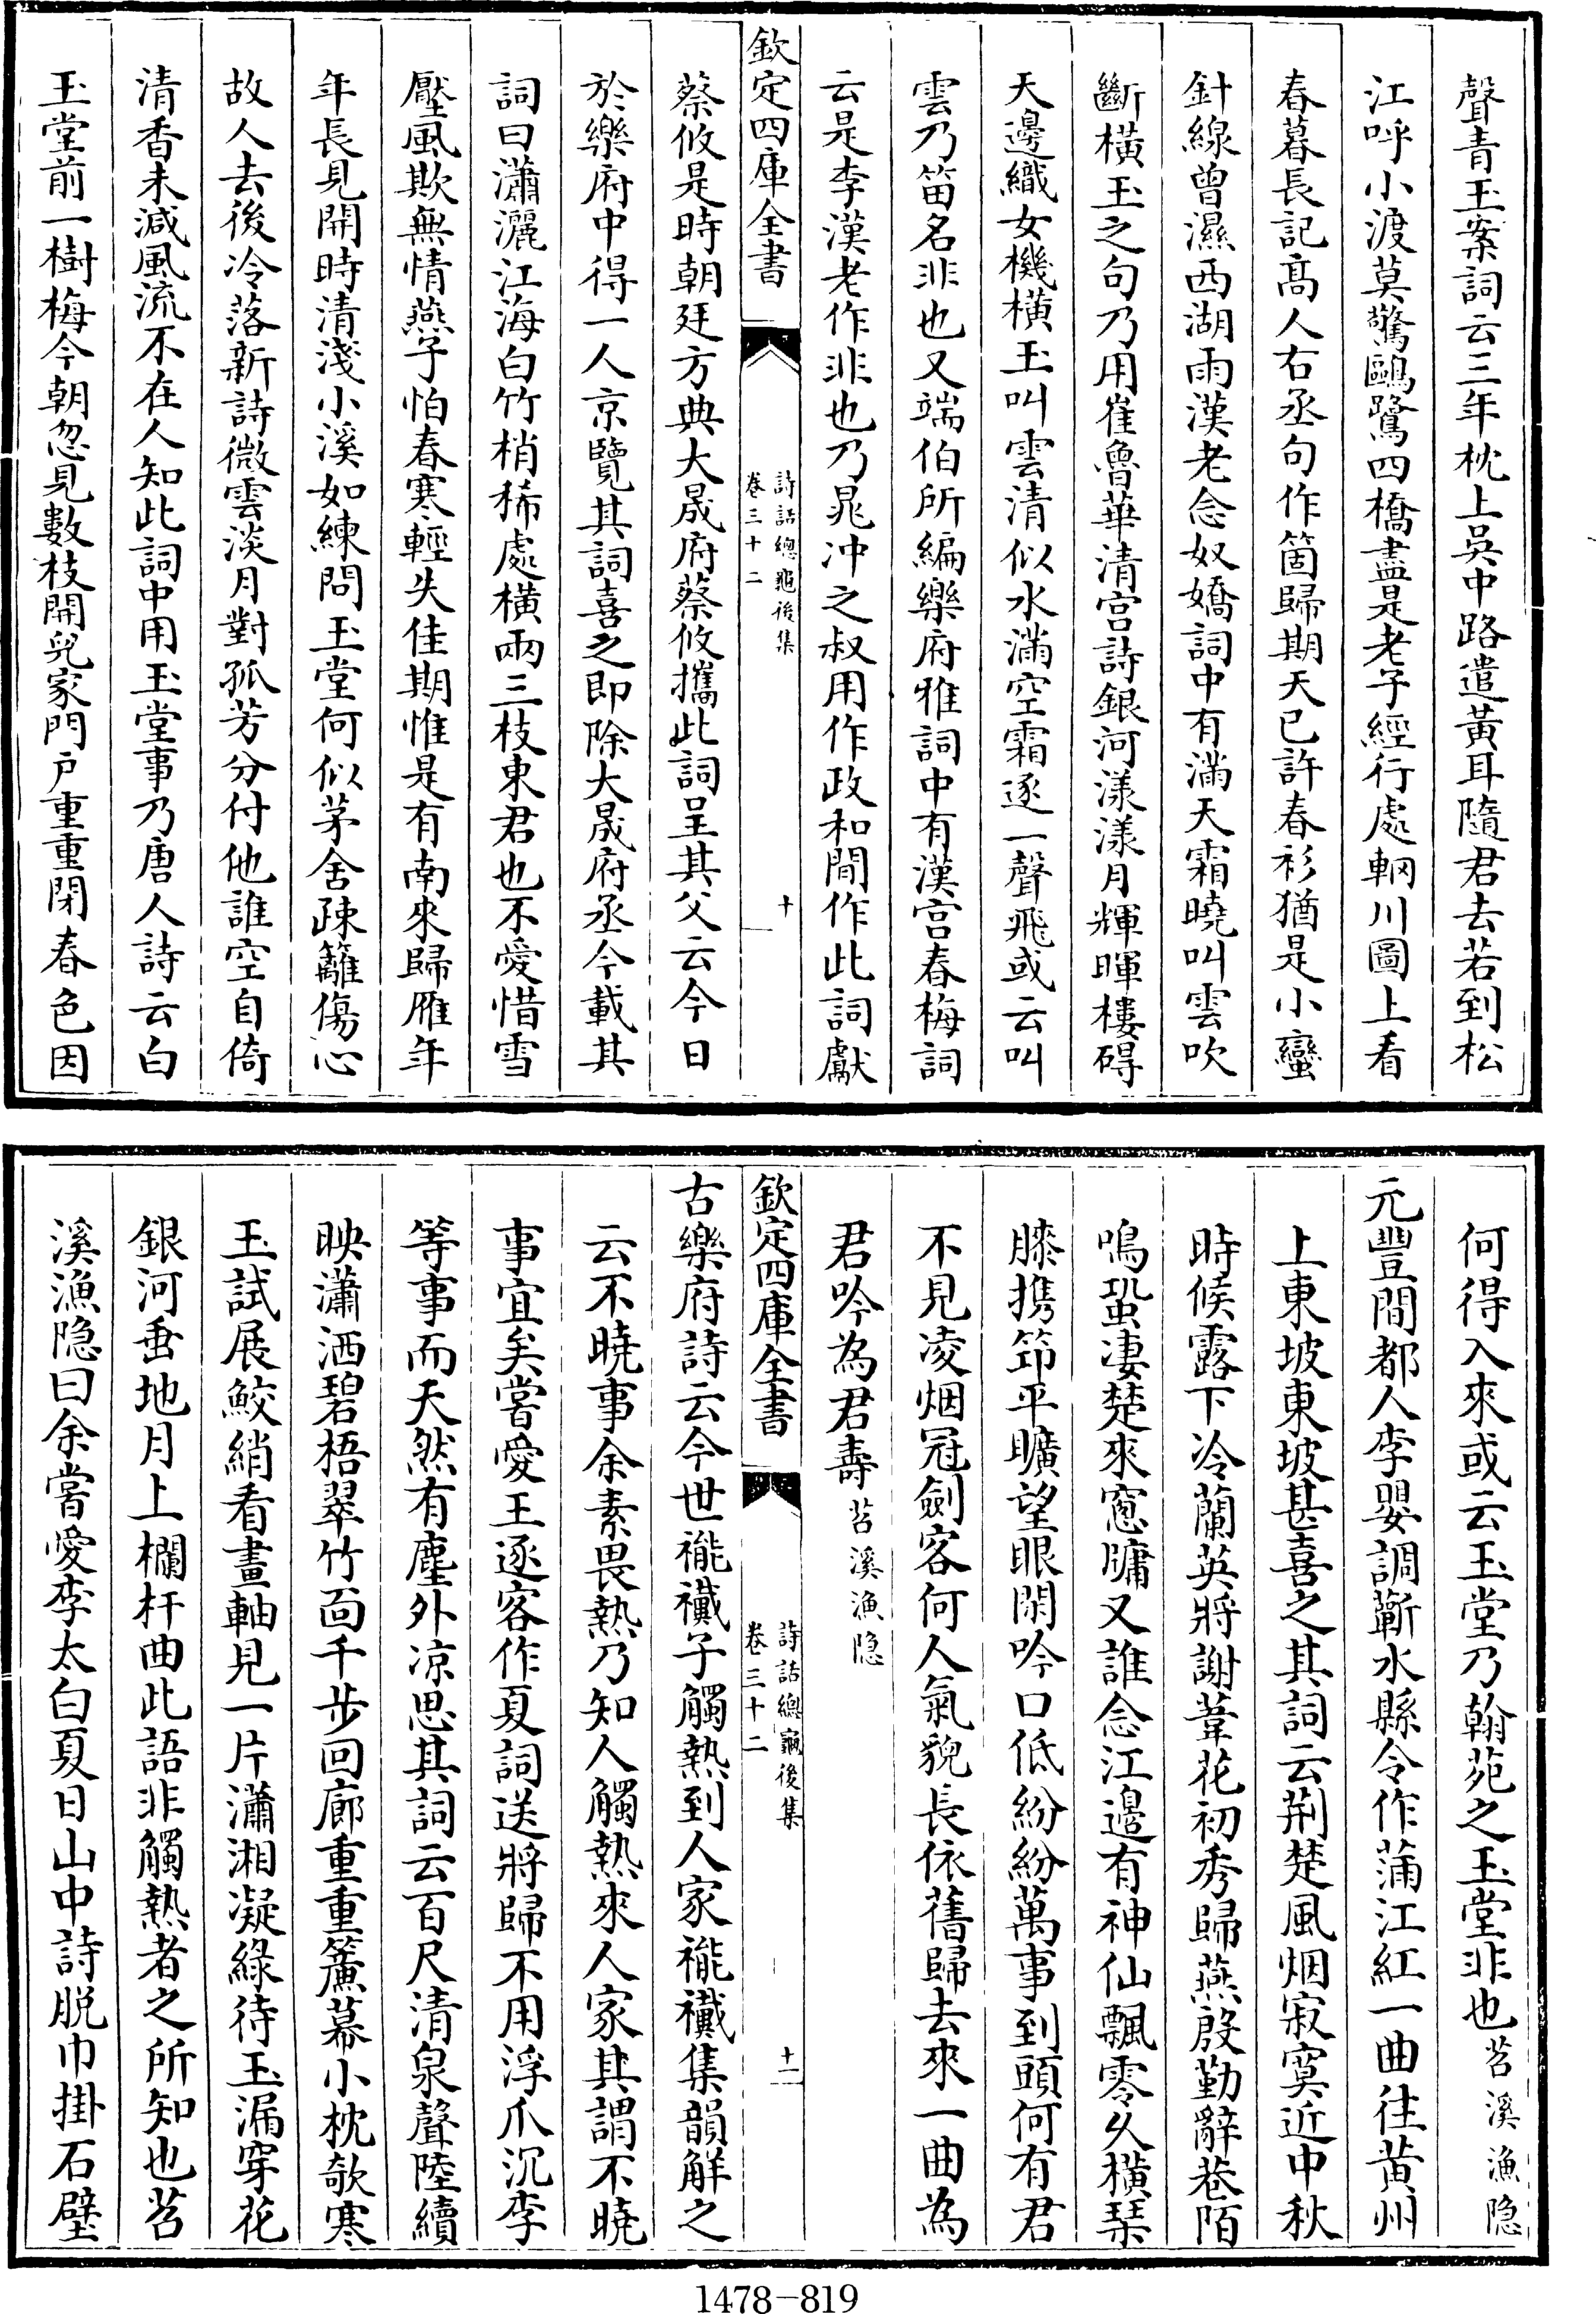 聲青玉案詞云三年枕上吳中路遣黃耳隨君去若到松
江呼小渡莫驚鷗鷺四橋盡是老子經行處輞川圖上看
春暮長記高人右丞句作箇歸期天已許春衫猶是小蠻
針線曾濕西湖雨漢老念奴嬌詞中有滿天霜曉叫雲吹
斷橫玉之句乃用崔魯華清宮詩銀河漾漾月輝暉樓碍
天邊織女機橫玉叫雲清似水滿空霜逐一聲飛或云叫
雲乃笛名非也又端伯所編樂府雅詞中有漢宮春梅詞
云是李漢老作非也乃晁冲之叔用作政和間作此詞獻
欽定四庫全書
詩話總龜後集
卷三十二
十
蔡攸是時朝廷方典大晟府蔡攸攜此詞呈其父云今日
於樂府中得一人京覽其詞喜之即除大晟府丞今載其
詞曰瀟灑江海白竹梢稀處橫兩三枝東君也不愛惜雪
壓風欺無情燕子怕春寒輕失佳期惟是有南來歸雁年
年長見開時清淺小溪如練問玉堂何似茅舍疎籬傷心
故人去後冷落新詩微雲淡月對孤芳分付他誰空自倚
清香未減風流不在人知此詞中用玉堂事乃唐人詩云白
玉堂前一樹梅今朝忽見數枝開兒家門戶重重閉春色因
何得入來或云玉堂乃翰苑之玉堂非也苕溪漁隐
元豐間都人李嬰調蘄水縣令作蒲江紅一曲往黄州
上東坡東坡甚喜之其詞云荆楚風烟寂寞近中秋
時候露下冷蘭英將謝葦花初秀歸燕殷勤辭巷陌
鳴蛩凄楚來窻牖又誰念江邊有神仙飄零久橫琴
膝携筇平曠望眼閑吟口低紛紛萬事到頭何有君
不見凌烟冠劍客何人氣貌長依舊歸去來一曲為
君吟為君壽苕溪漁隐
欽定四庫全書
詩話總龜後集
卷三十二
十一
古樂府詩云今世褦襶子觸熱到人家褦襶集韻解之
云不曉事余素畏熱乃知人觸熱來人家其謂不曉
事宜矣嘗愛王逐客作夏詞送將歸不用浮爪沉李
等事而天然有塵外凉思其詞云百尺清泉聲陸續
映瀟洒碧梧翠竹面千步回廊重重簾幕小枕欹寒
玉試展鮫綃看畫軸見一片瀟湘凝綠待玉漏穿花
銀河垂地月上欄杆曲此語非觸熱者之所知也苕
溪漁隐曰余嘗愛李太白夏日山中詩脱巾掛石壁
1478-819